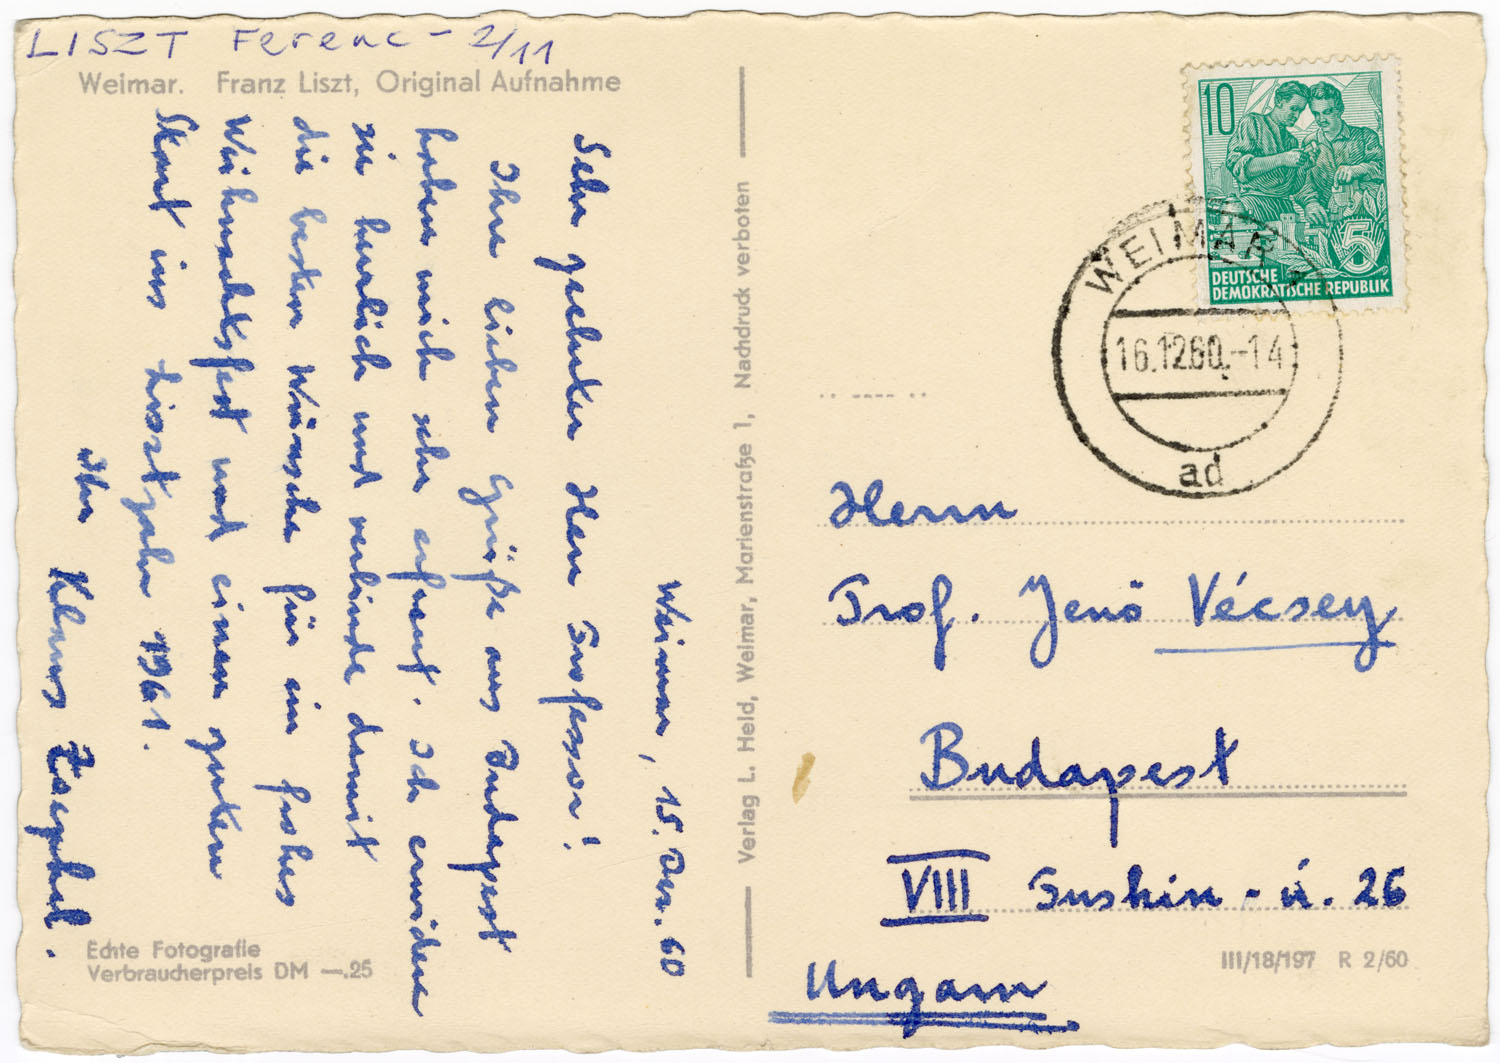 LISZT Ferenc - 2/11
Weimar. Franz Liszt, Original Aufnahme
Weimar, 15. Dez. 60
Sehr geehrter Herr Professor!
Ihre lieben Grüße aus Budapest
haben mich sehr erfreut. Ich erwidere
sie herzlich und verbinde damit
die besten Wünsche für ein frohes
Weihnachtsfest und einen guten
Start ins Lisztjahr 1961.
Ihr Klaus
Echte Fotografie
Verbraucherpreis DM —.25
Verlag L. Held, Weimar, Marienstraße 1, Nachdruck verboten
10
5
DEUTSCHE
DEMOKRATISCHE REPUBLIK
WEIMAR
16.12.60.-14
ad
Herrn
Prof. Jenö Vécsey
Budapest
VIII Puskin - ú. 26
Ungarn
III/18/197 R 2/60